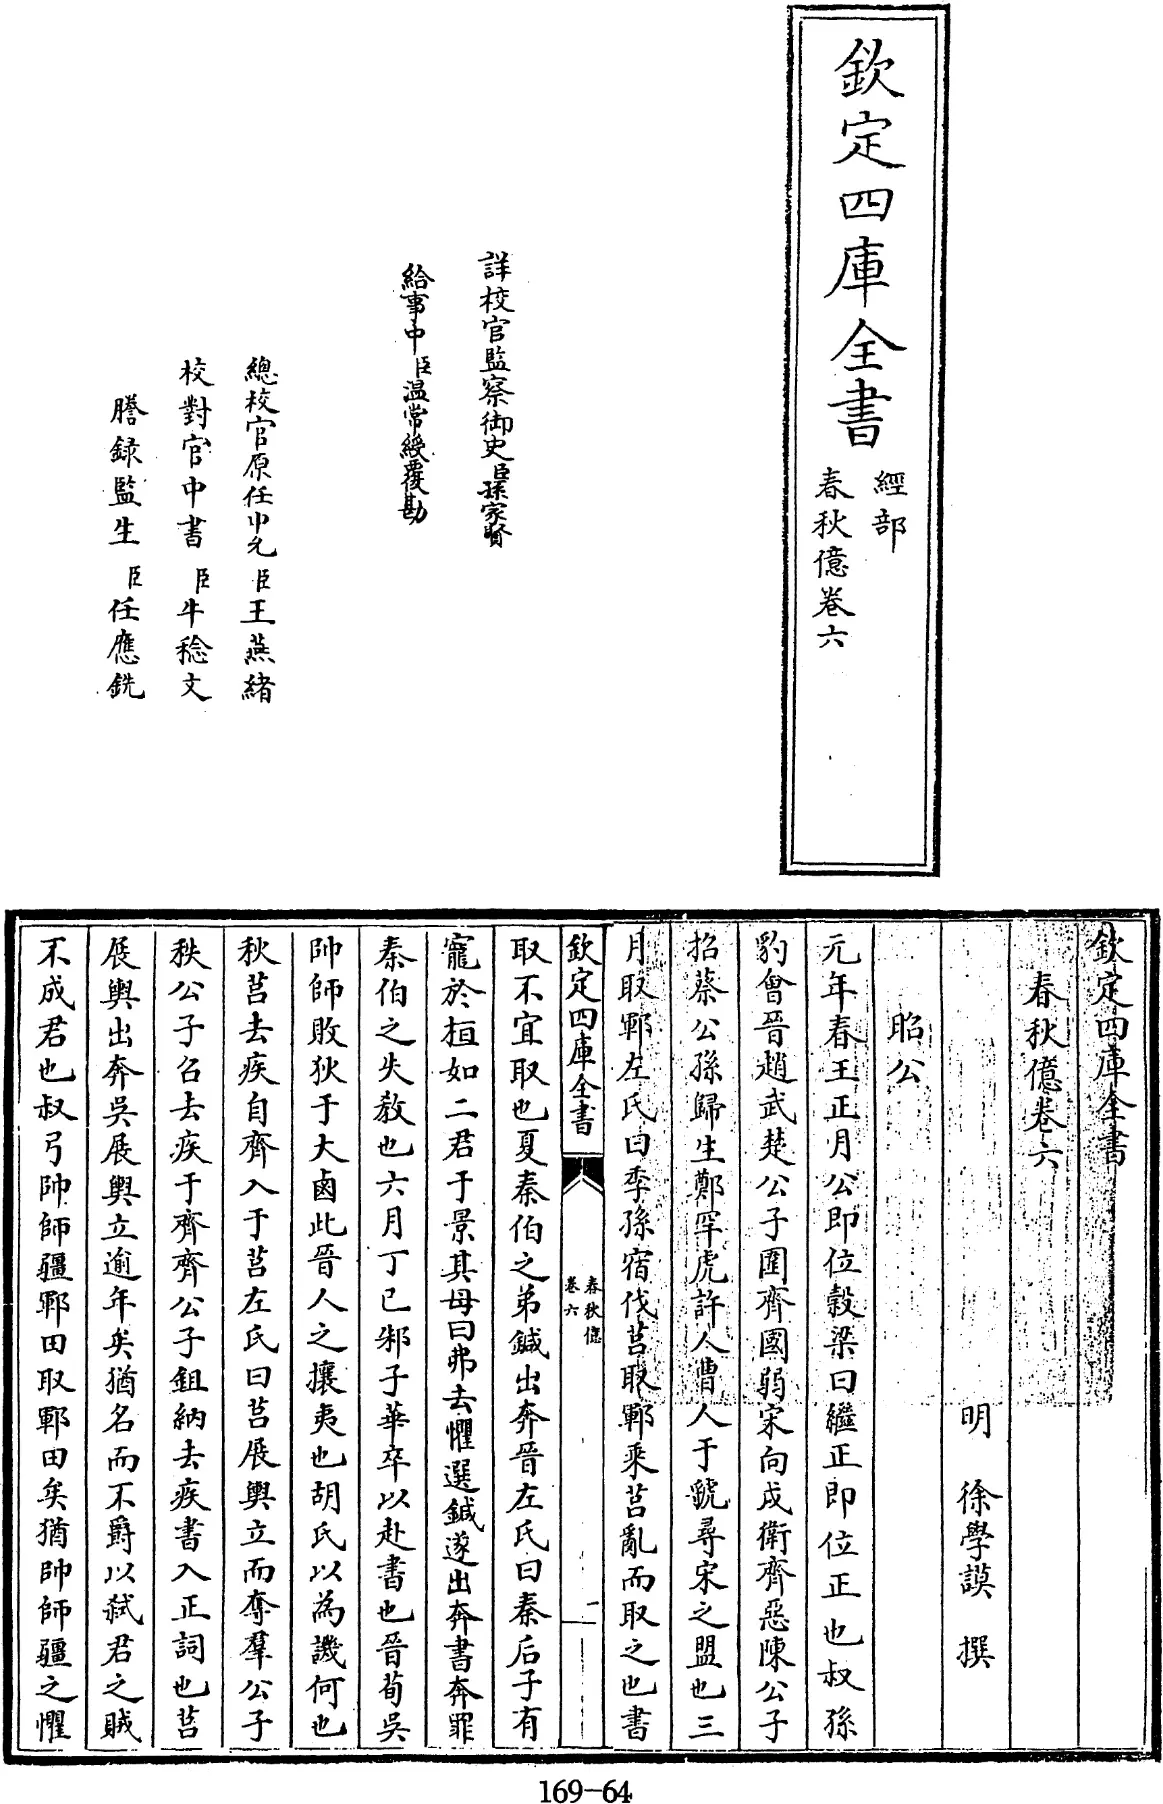 欽定四庫全書
經部
春秋億卷六
詳校官監察御史臣孫家賢
給事中臣温常綬覆勘
總校官原任中允臣王燕緒
校對官中書臣牛稔文
謄録監生臣任應銑
欽定四庫全書
春秋億卷六
明 徐學謨 撰
昭公
元年春王正月公即位穀梁曰繼正即位正也叔孫
豹會晉趙武楚公子圍齊國弱宋向戌衛齊惡陳公子
招蔡公孫歸生鄭罕虎許人曹人于虢尋宋之盟也三
月取鄆左氏曰季孫宿伐莒取鄆乘莒亂而取之也書
欽定四庫全書
春秋億
卷六
一
取不宜取也夏秦伯之弟鍼出奔晉左氏曰秦后子有
寵於桓如二君于景其母曰弗去懼選鍼遂出奔書奔罪
秦伯之失教也六月丁巳邾子華卒以赴書也晉荀吳
帥師敗狄于大鹵此晉人之攘夷也胡氏以為譏何也
秋莒去疾自齊入于莒左氏曰莒展輿立而奪羣公子
秩公子召去疾于齊齊公子鉏納去疾書入正詞也莒
展輿出奔吳展輿立逾年矣猶名而不爵以弒君之賊
不成君也叔弓帥師疆鄆田取鄆田矣猶帥師疆之懼
169-64